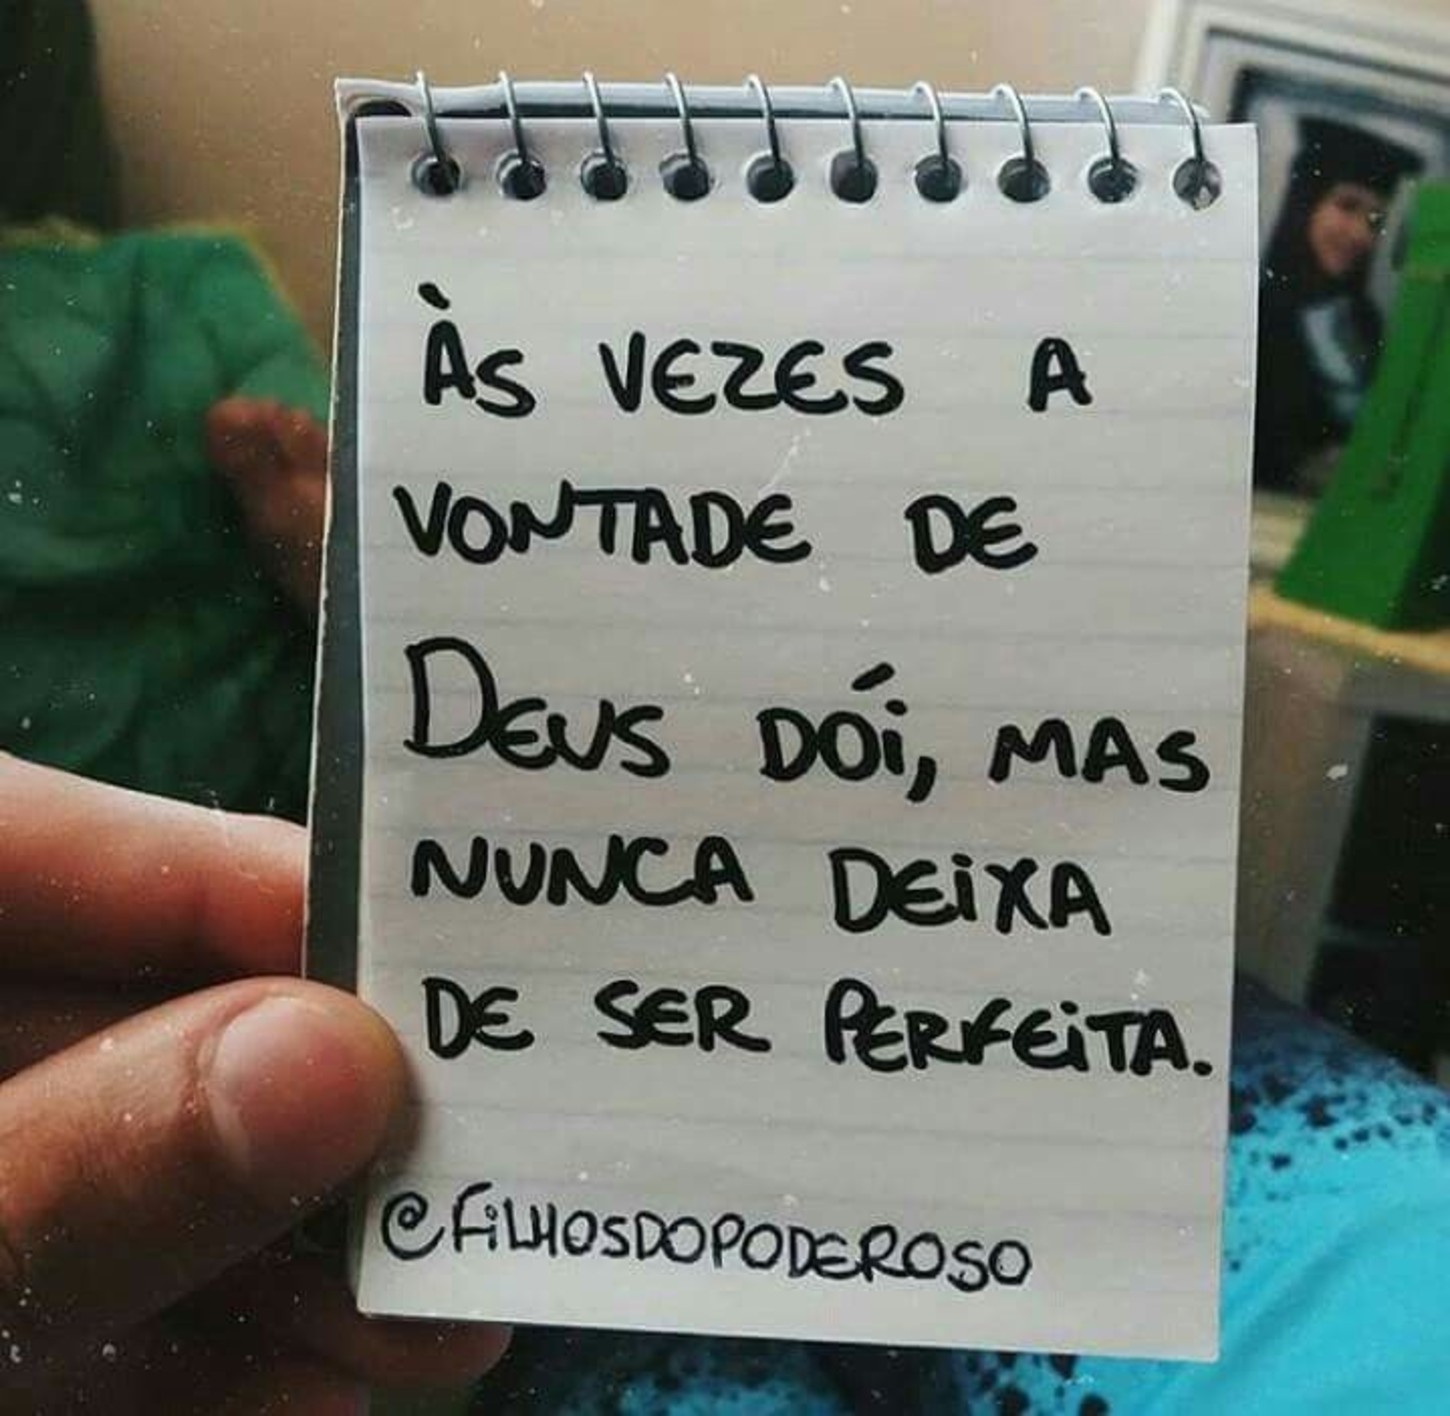 Às vezes a
vontade de
Deus dói, mas
nunca deixa
de ser perfeita.
@filhosdopoderoso